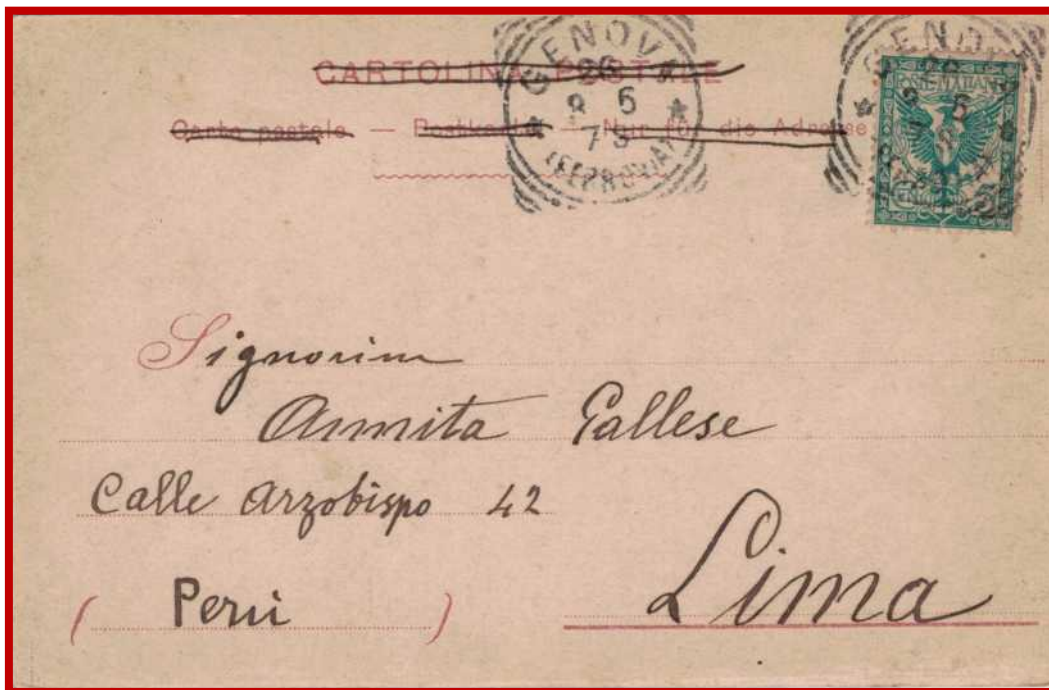 CARTOLINA POSTALE
Carte postale — Postkarte — Nur für die Adresse
GENOVA
26
8 6
(FERROVIA)
GENOVA
POSTE ITALIANE
Signorina
Annita Gallese
Calle Arzobispo 42
Lima
( Perú )